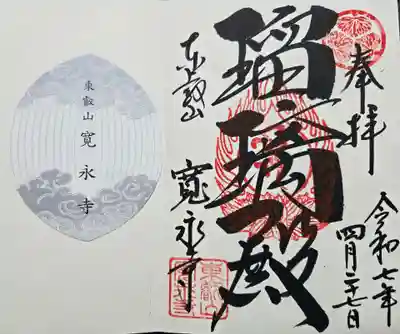 奉拝
令和七年
四月二十七日
瑠璃殿
東叡山
寛永寺
東叡山 寛永寺